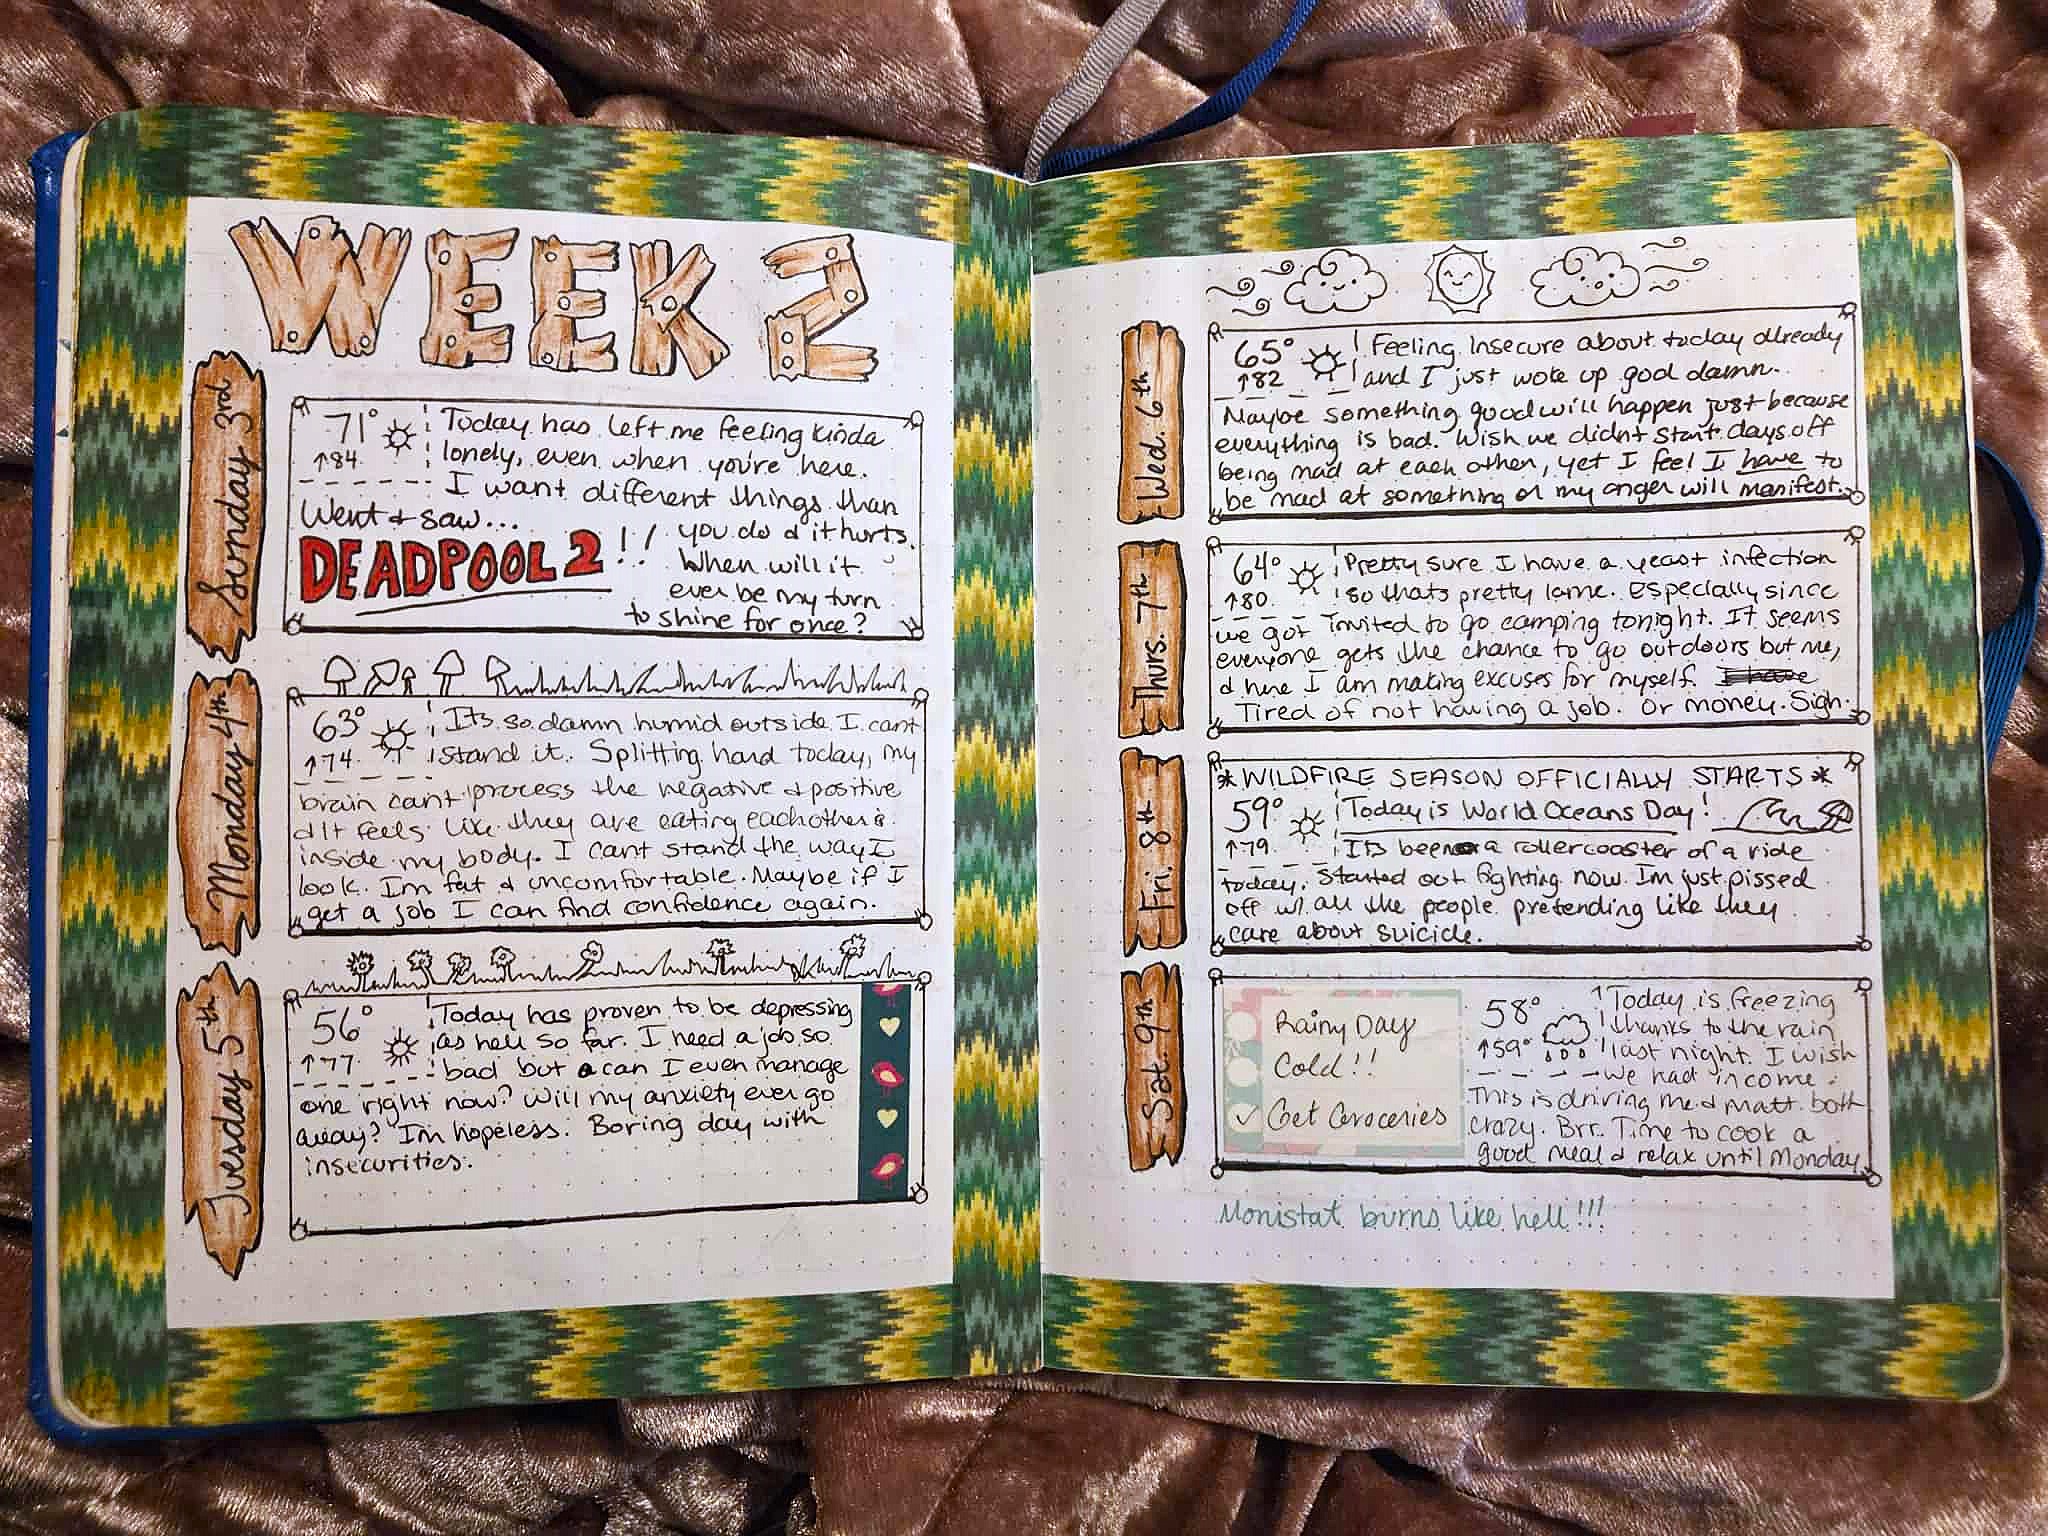 WEEK 2
Sunday 3rd
71°
↑84
Today has left me feeling kinda
lonely, even when you're here.
I want different things than
you do & it hurts.
When will it
ever be my turn
to shine for once?
Went & saw...
DEADPOOL 2!!
Monday 4th
63°
↑74
Its so damn humid outside I cant
stand it. Splitting hard today, my
brain cant process the negative & positive
& it feels like they are eating each other
inside my body. I cant stand the way I
look. Im fat & uncomfortable. Maybe if I
get a job I can find confidence again.
Tuesday 5th
56°
↑77
Today has proven to be depressing
as hell so far. I need a job so
bad but can I even manage
one right now? Will my anxiety ever go
away? I'm hopeless. Boring day with
insecurities.
Wed. 6th
65°
↑82
Feeling insecure about today already
and I just woke up god damn.
Maybe something good will happen just because
everything is bad. Wish we didnt start days off
being mad at each other, yet I feel I have to
be mad at something or my anger will manifest.
Thurs. 7th
64°
↑80
Pretty sure I have a yeast infection
so thats pretty lame. Especially since
we got invited to go camping tonight. It seems
everyone gets the chance to go outdoors but me,
& here I am making excuses for myself. I have
Tired of not having a job. Or money. Sigh.
Fri. 8th
*WILDFIRE SEASON OFFICIALLY STARTS*
59°
↑79
Today is World Oceans Day!
Its been a rollercoaster of a ride
today. Started out fighting now Im just pissed
off w/ all the people pretending like they
care about suicide.
Sat. 9th
Rainy Day
Cold!!
✓ Get Groceries
58°
↑59°
Today is freezing
thanks to the rain
last night. I wish
we had income.
This is driving me & Matt both
crazy. Brr. Time to cook a
good meal & relax until Monday
Monistat burns like hell!!!